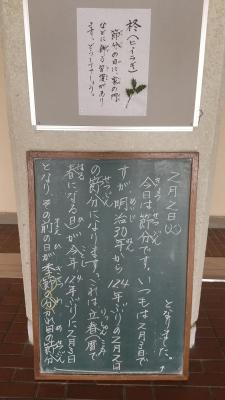 柊(ヒイラギ)
節分の日に家の門
などに飾る習慣があり
ます。
2月2日(火)
きょう せつぶん
今日は節分です。いつもは2月3日で
めいじ ねん
すが明治30年から124年ぶりの2月2日
の節分になります。これは立春暦で
はる
春になる日が今年124年ぶりに2月3日
となり、その前の日が季節の分かれ目の節分
となりました。